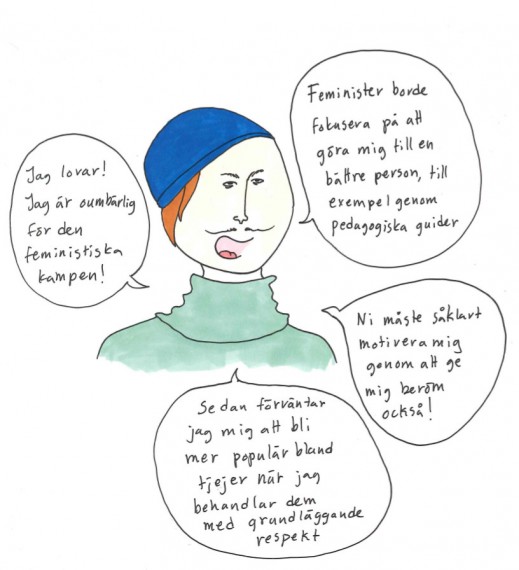 Feminister borde
fokusera på att
göra mig till en
bättre person, till
exempel genom
pedagogiska guider
Jag lovar!
Jag är oumbärlig
för den
feministiska
kampen!
Ni måste såklart
motivera mig
genom att ge
mig beröm
också!
Sedan förväntar
jag mig att bli
mer populär bland
tjejer när jag
behandlar dem
med grundläggande
respekt